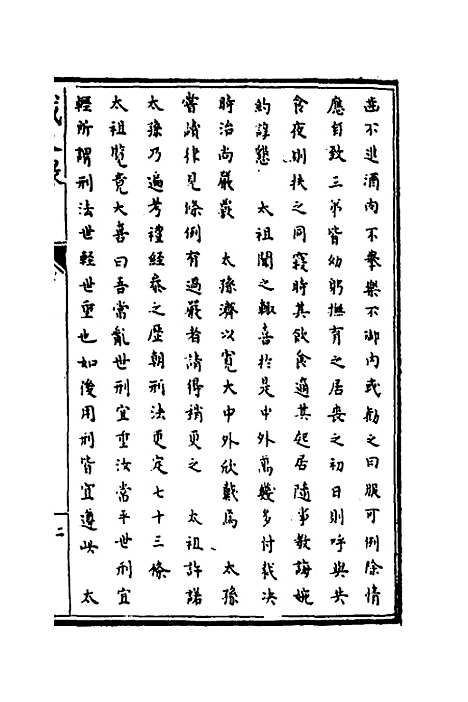 齒不進酒肉不舉樂不御內或勸之曰服可例除情
應自致三弟皆幼躬撫育之居喪之初日則呼與共
食夜則扶之同寢時其飲食適其起居隨事教誨婉
約諄懇　太祖聞之輒喜於是中外萬幾多付裁决
時治尚嚴覈　太孫濟以寬大中外欣戴焉　太孫
嘗請律見條例有過嚴者請得稍更之　太祖許諾
太孫乃遍考禮經參之歷朝刑法更定七十三條
太祖覽竟大喜曰吾當亂世刑宜重汝當平世刑宜
輕所謂刑法世輕世重也如後用刑皆宜遵此　太
二